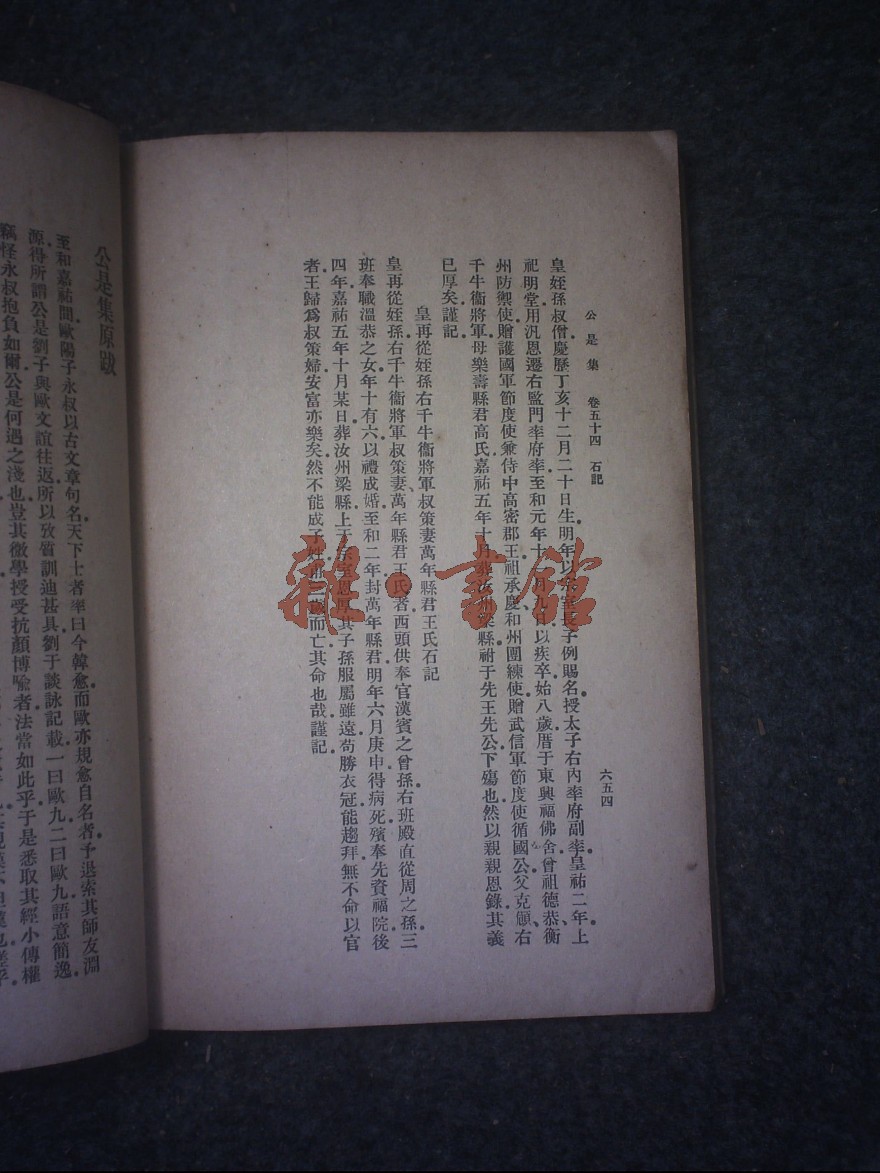 公是集 卷五十四 石記
六五四
皇姪孫叔僧慶歷丁亥十二月二十日生明年以宗室長子例賜名授太子右內率府副率皇祐二年上
祀明堂用汎恩遷右監門率府率至和元年十一月九日以疾卒始八歲厝于東興福佛舍曾祖德恭衡
州防禦使贈護國軍節度使兼侍中高密郡王祖承慶和州團練使贈武信軍節度使循國公父克頤右
千牛衞將軍母樂壽縣君高氏嘉祐五年十月葬汝州梁縣祔于先王先公下殤也然以親親恩錄其義
已厚矣謹記
皇再從姪孫右千牛衞將軍叔策妻萬年縣君王氏石記
皇再從姪孫右千牛衞將軍叔策妻萬年縣君王氏者西頭供奉官漢賓之曾孫右班殿直從周之孫三
班奉職溫恭之女年十有六以禮成婚至和二年封萬年縣君明年六月庚申得病死殯奉先資福院後
四年嘉祐五年十月某日葬汝州梁縣上于宗室恩厚其子孫服屬雖遠苟勝衣冠能趨拜無不命以官
者王歸爲叔策婦安富亦樂矣然不能成子姓而亡其命也哉謹記
雜·書館
公是集原跋
至和嘉祐間歐陽子永叔以古文章句名天下士者率曰今韓愈而歐亦規愈自名者予退索其師友淵
源得所謂公是劉子與歐文誼往返所以攷質訓迪甚具劉于談詠記載一曰歐九二曰歐九語意簡逸
竊怪永叔抱負如爾公是何遇之淺也豈其徵學授受抗顏博喻者法當如此乎于是悉取其經小傳權